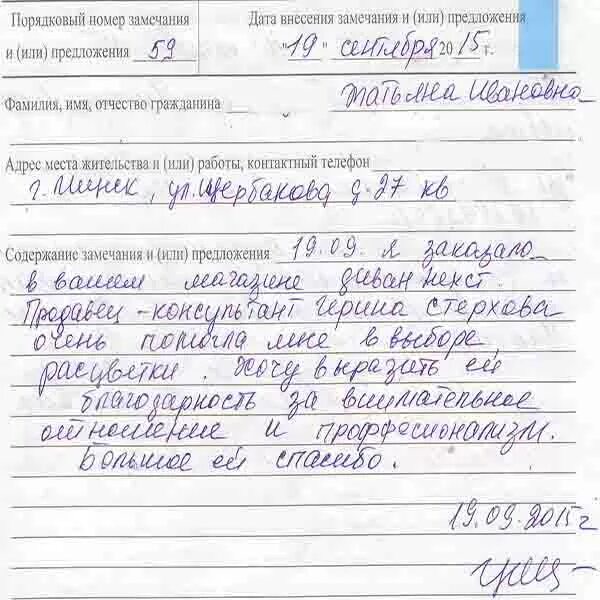 Порядковый номер замечания
и (или) предложения 59
Дата внесения замечания и (или) предложения
"19" сентября 2015 г.
Фамилия, имя, отчество гражданина Татьяна Ивановна
Адрес места жительства и (или) работы, контактный телефон
г. Минск, ул. Щербакова д. 27 кв
Содержание замечания и (или) предложения 19.09. я заказало
в вашем магазине диван некст.
Продавец - консультант Ирина Стерхова
очень помогла мне в выборе
расцветки. Хочу выразить ей
благодарность за внимательное
отношение и проффесионализм.
Большое ей спасибо.
19.09.2015 г